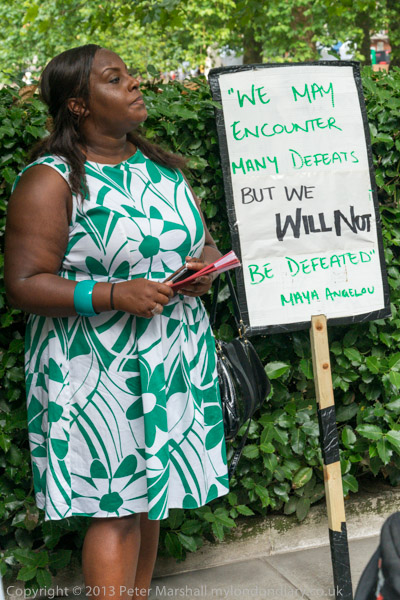 "WE MAY
ENCOUNTER
MANY DEFEATS
BUT WE
WILL NOT
BE DEFEATED"
MAYA ANGELOU
Copyright © 2013 Peter Marshall mylondondiary.co.uk